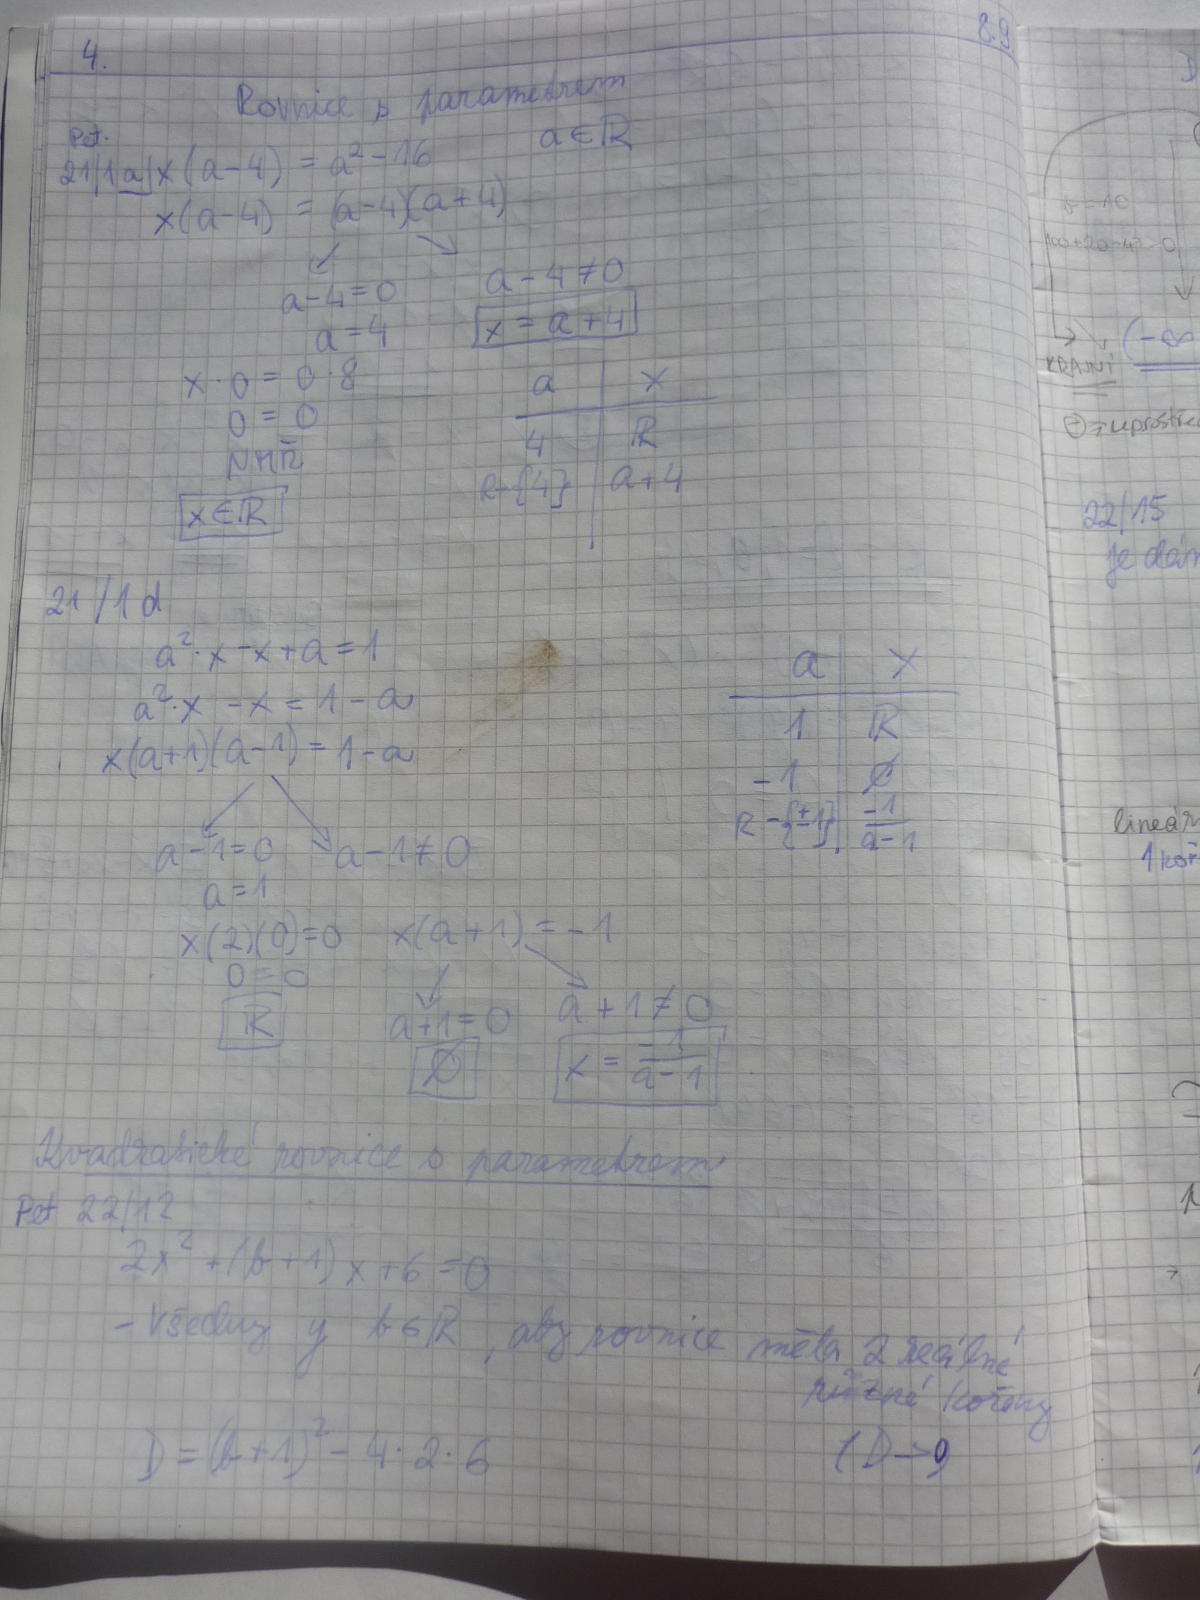 4.
8.9.
Rovnice s parametrem
Pet.
a ∈ ℝ
21/1 a) x(a-4) = a² - 16
x(a-4) = (a-4)(a+4)
↙ ↘
a-4=0
a-4≠0
a=4
x = a+4
x·0 = 0·8
0 = 0
NMŘ
x∈ℝ
a | x
4 | ℝ
R-{4} | a+4
21/1d
a²·x - x + a = 1
a²·x - x = 1 - a
x(a+1)(a-1) = 1-a
a-1=0
a-1≠0
a=1
x(2)(0)=0
x(a+1) = -1
0=0
ℝ
a+1=0
a+1≠0
∅
x = -1/a-1
a | x
1 | ℝ
-1 | ∅
R-{±1} | -1/a-1
Kvadratické rovnice s parametrem
Pet 22/12
2x² + (b+1)x + 6 = 0
- všechny b∈ℝ, aby rovnice měla 2 reálné
různé kořeny
D = (b+1)² - 4·2·6
b=10
→ (-∞
KRAJNÍ
22/15
je dán
lineárn
1 koř